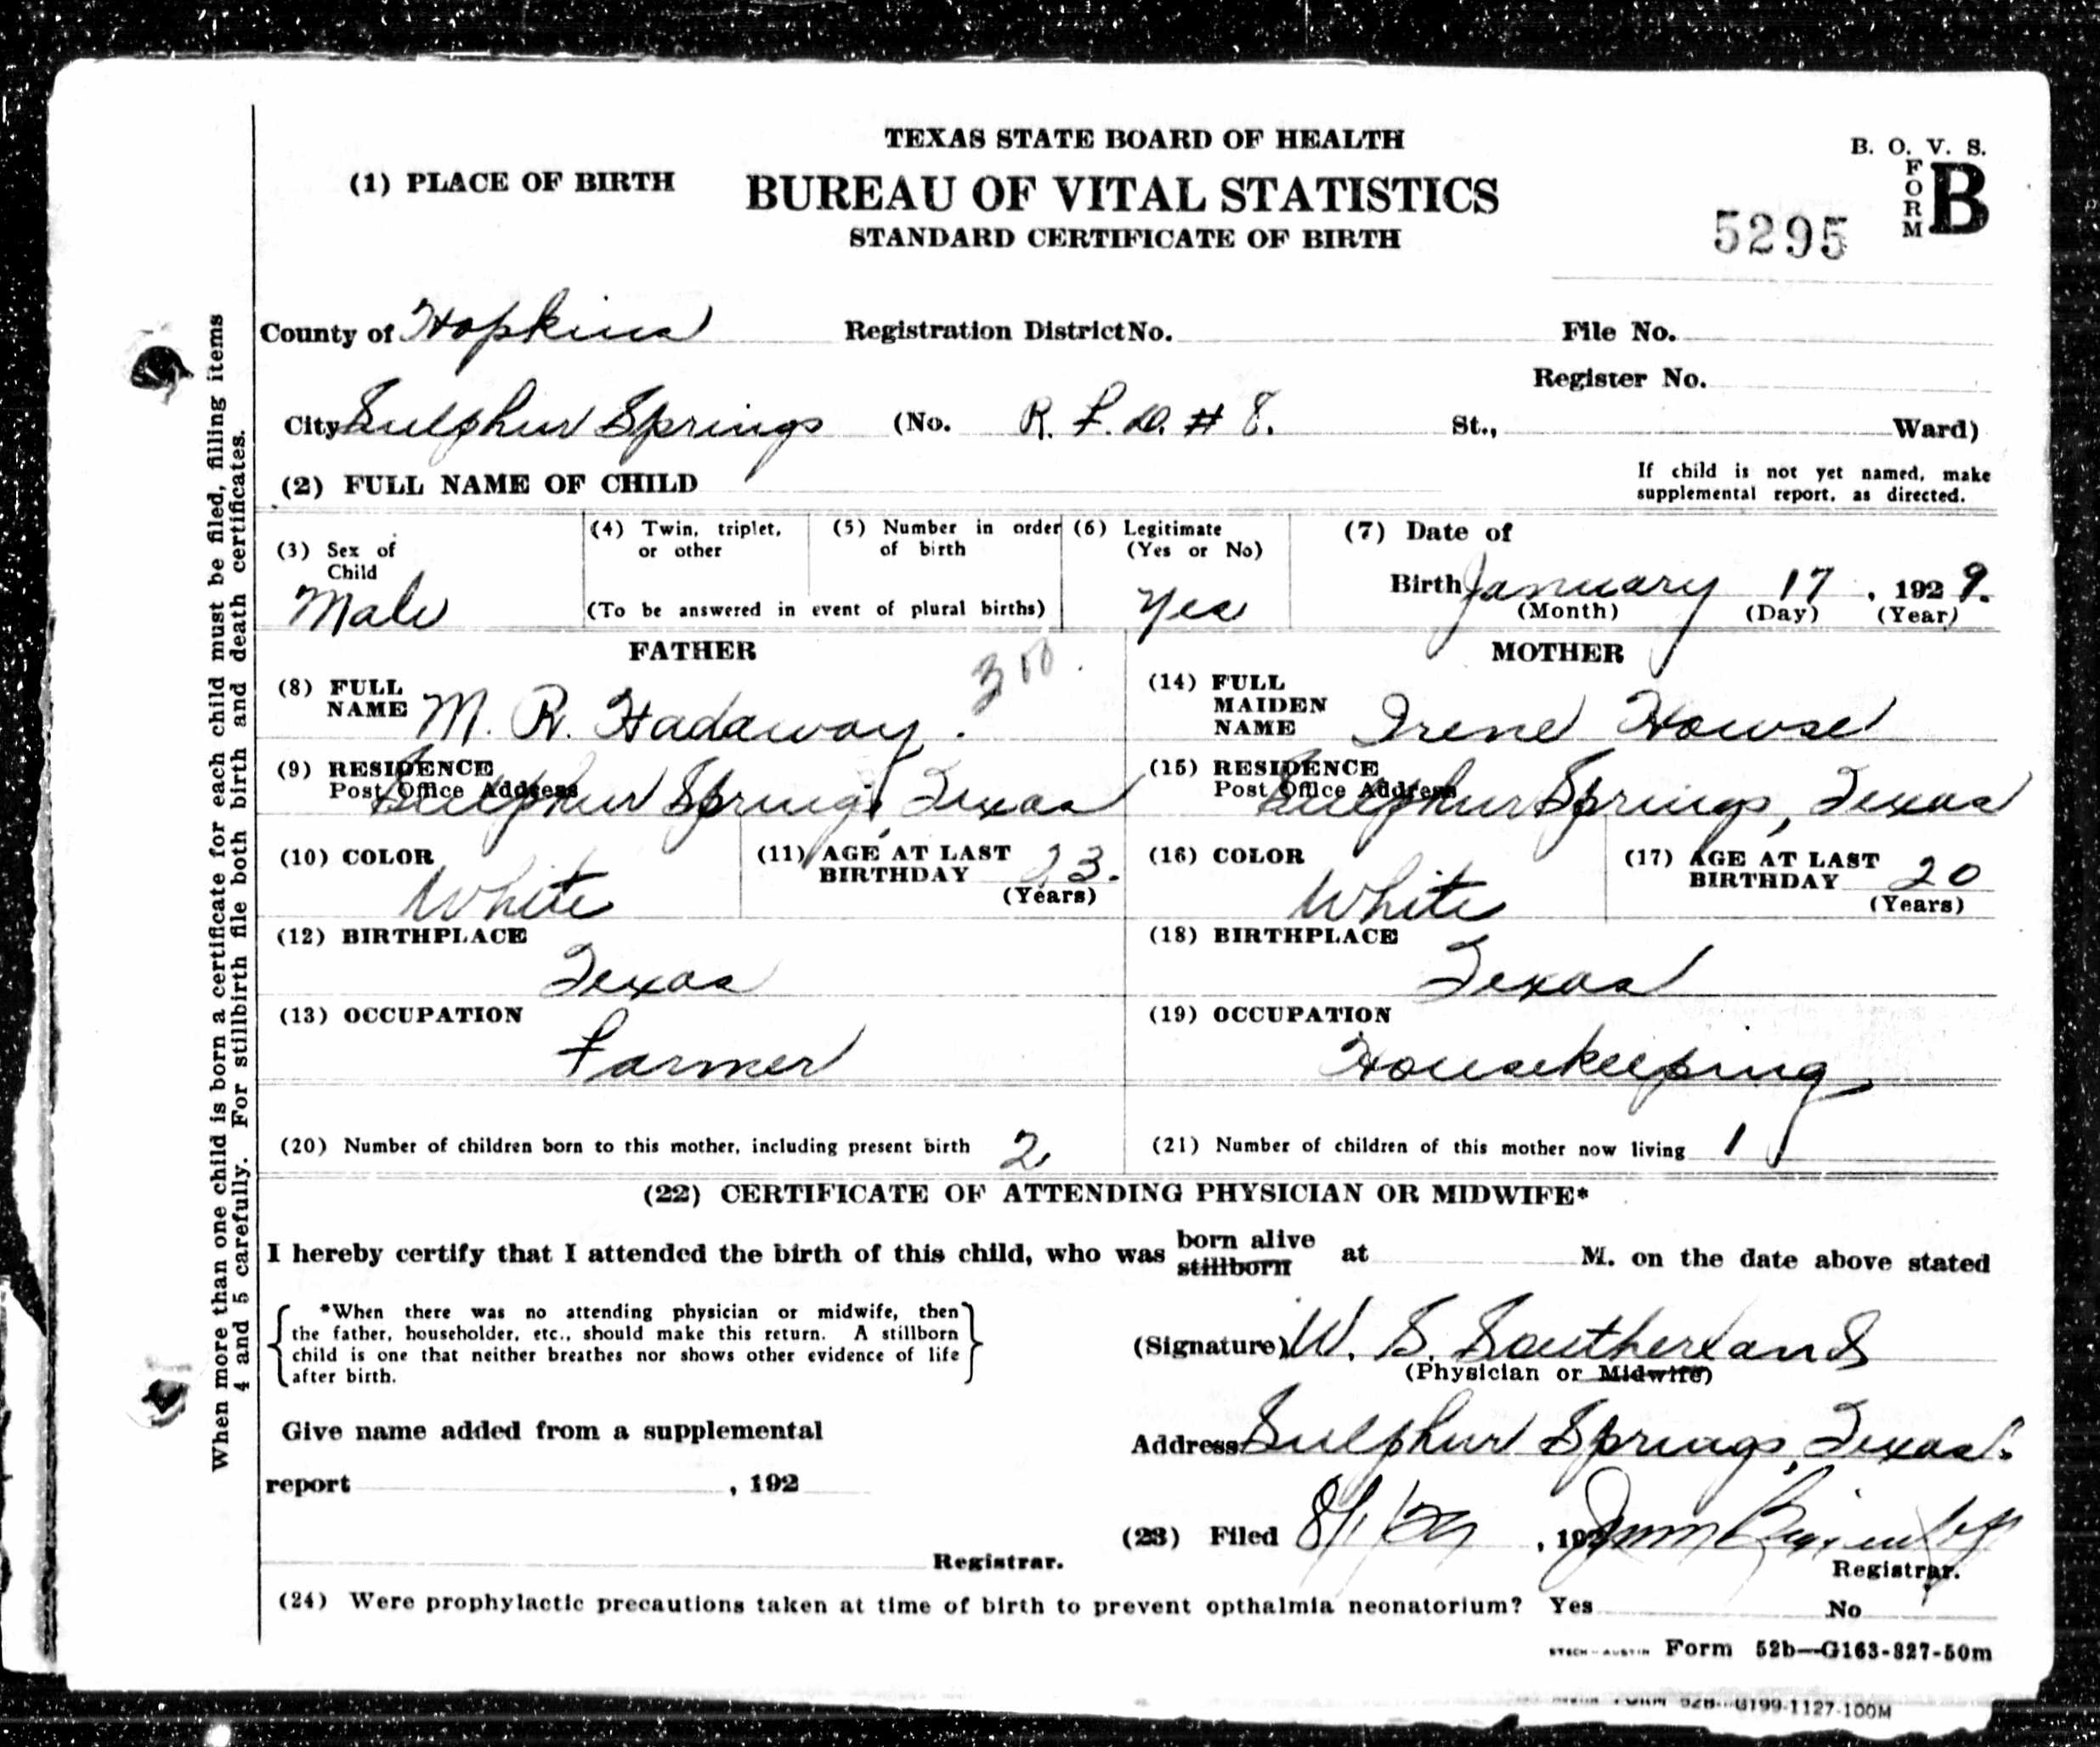 TEXAS STATE BOARD OF HEALTH
B. O. V. S.
(1) PLACE OF BIRTH
BUREAU OF VITAL STATISTICS
FORM B
STANDARD CERTIFICATE OF BIRTH
5295
County of Hopkins Registration District No. File No.
Register No.
City Sulphur Springs (No. R. F. D. # 8. St., Ward)
(2) FULL NAME OF CHILD
If child is not yet named, make
supplemental report, as directed.
(3) Sex of
Child
Male
(4) Twin, triplet,
or other
(5) Number in order
of birth
(To be answered in event of plural births)
(6) Legitimate
(Yes or No)
Yes
(7) Date of
Birth January 17, 1929.
(Month) (Day) (Year)
FATHER
(8) FULL
NAME M. R. Hadaway.
(9) RESIDENCE
Post Office Address Sulphur Springs, Texas
(10) COLOR
White
(11) AGE AT LAST
BIRTHDAY 23.
(Years)
(12) BIRTHPLACE
Texas
(13) OCCUPATION
Farmer
MOTHER
(14) FULL
MAIDEN
NAME Irene Howse
(15) RESIDENCE
Post Office Address Sulphur Springs, Texas
(16) COLOR
White
(17) AGE AT LAST
BIRTHDAY 20
(Years)
(18) BIRTHPLACE
Texas
(19) OCCUPATION
Housekeeping
(20) Number of children born to this mother, including present birth 2
(21) Number of children of this mother now living 1
(22) CERTIFICATE OF ATTENDING PHYSICIAN OR MIDWIFE*
I hereby certify that I attended the birth of this child, who was born alive stillborn at M. on the date above stated
*When there was no attending physician or midwife, then
the father, householder, etc., should make this return. A stillborn
child is one that neither breathes nor shows other evidence of life
after birth.
(Signature) W. S. Southerland
(Physician or Midwife)
Give name added from a supplemental
report , 192
Registrar.
Address Sulphur Springs, Texas.
(23) Filed 8/1/29, 192
Registrar.
(24) Were prophylactic precautions taken at time of birth to prevent opthalmia neonatorium? Yes No
Form 52b—G163-827-50m
G199-1127-100M
When more than one child is born a certificate for each child must be filed, filling items
4 and 5 carefully. For stillbirth file both birth and death certificates.